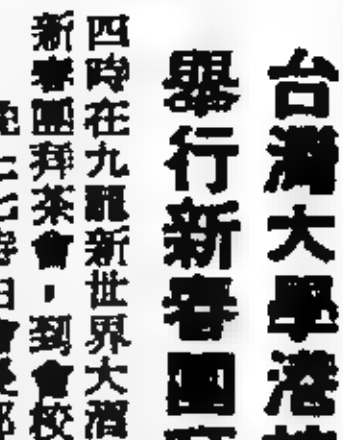 台灣大學港
舉行新春團
四時在九龍新世界大酒
新春團拜茶會,到會校